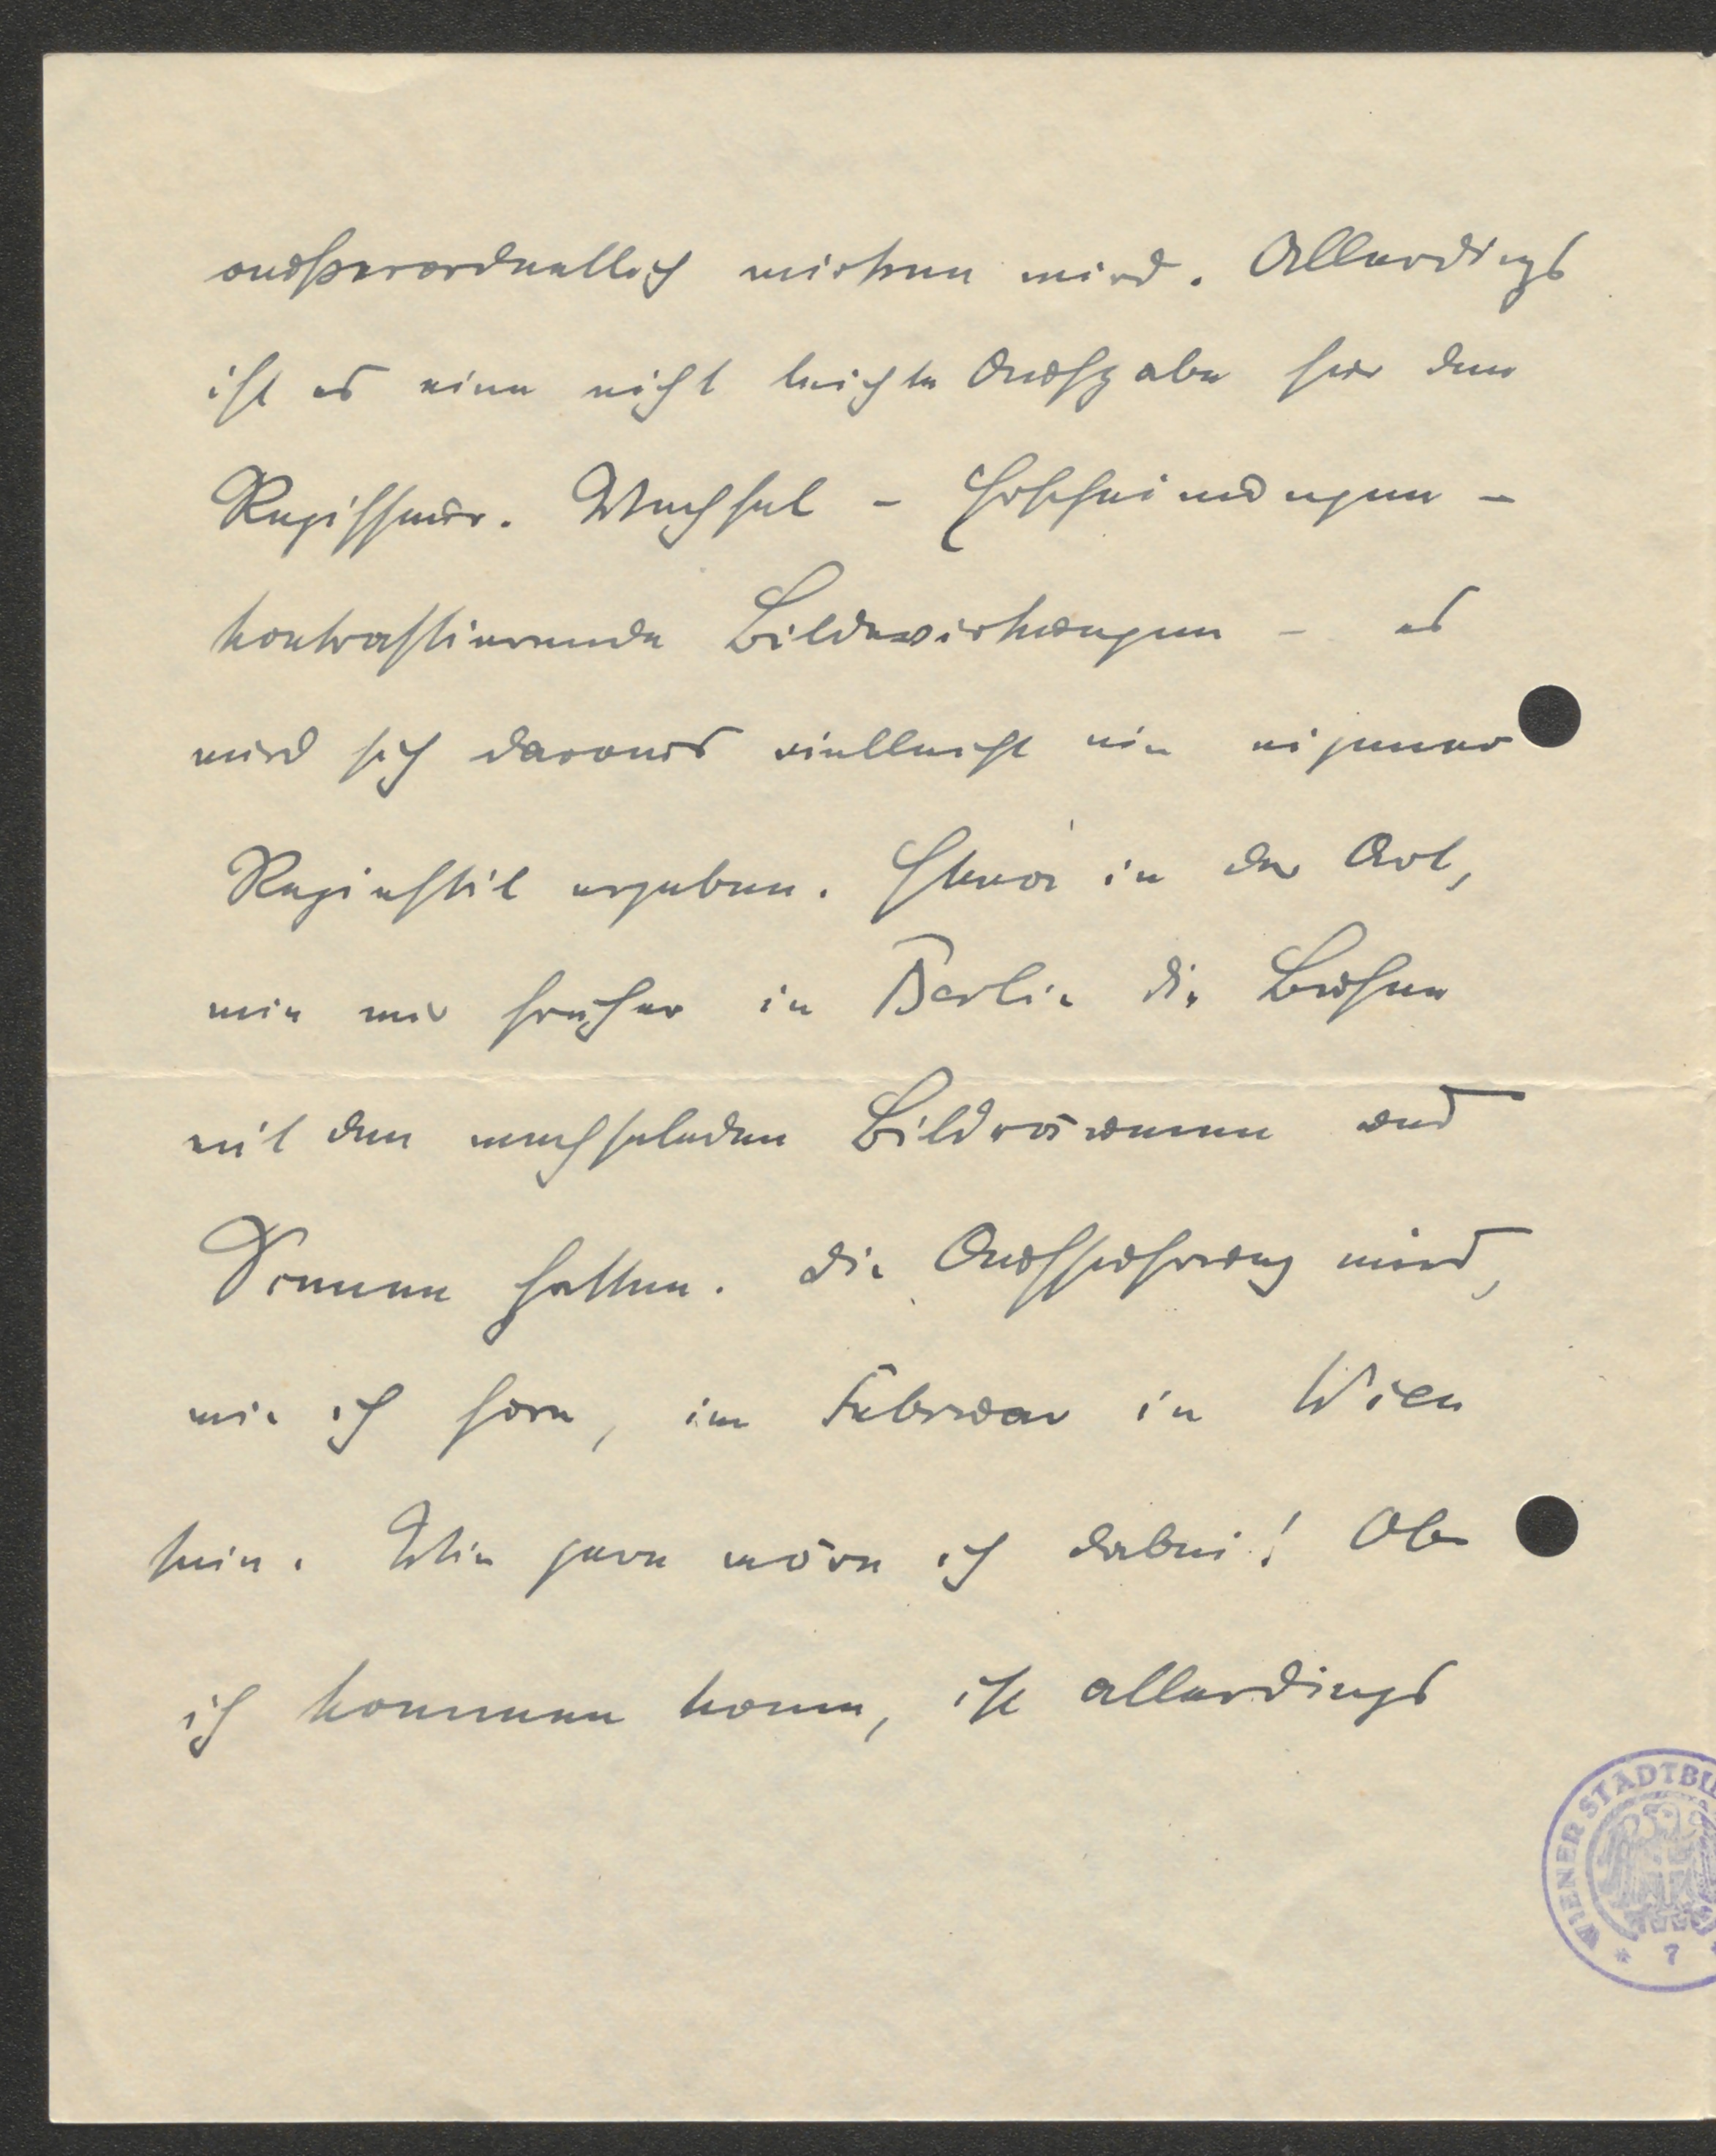 außerordentlich wirken wird. Allerdings
ist es eine nicht leichte Aufgabe für den
Regisseur. Wechsel - Erscheinungen -
kontrastierende Bildwirkungen - es
wird sich daraus vielleicht ein eigener
Regiestil ergeben. Etwa in der Art,
wie wir früher in Berlin die Bühne
mit den wechselnden Bildräumen und
hatten. Die Aufführung wird,
wie ich höre, im Februar in Wien
sein. Wie gern wäre ich dabei! Ob
ich kommen kann, ist allerdings
WIENER STADTBI
* 7 *